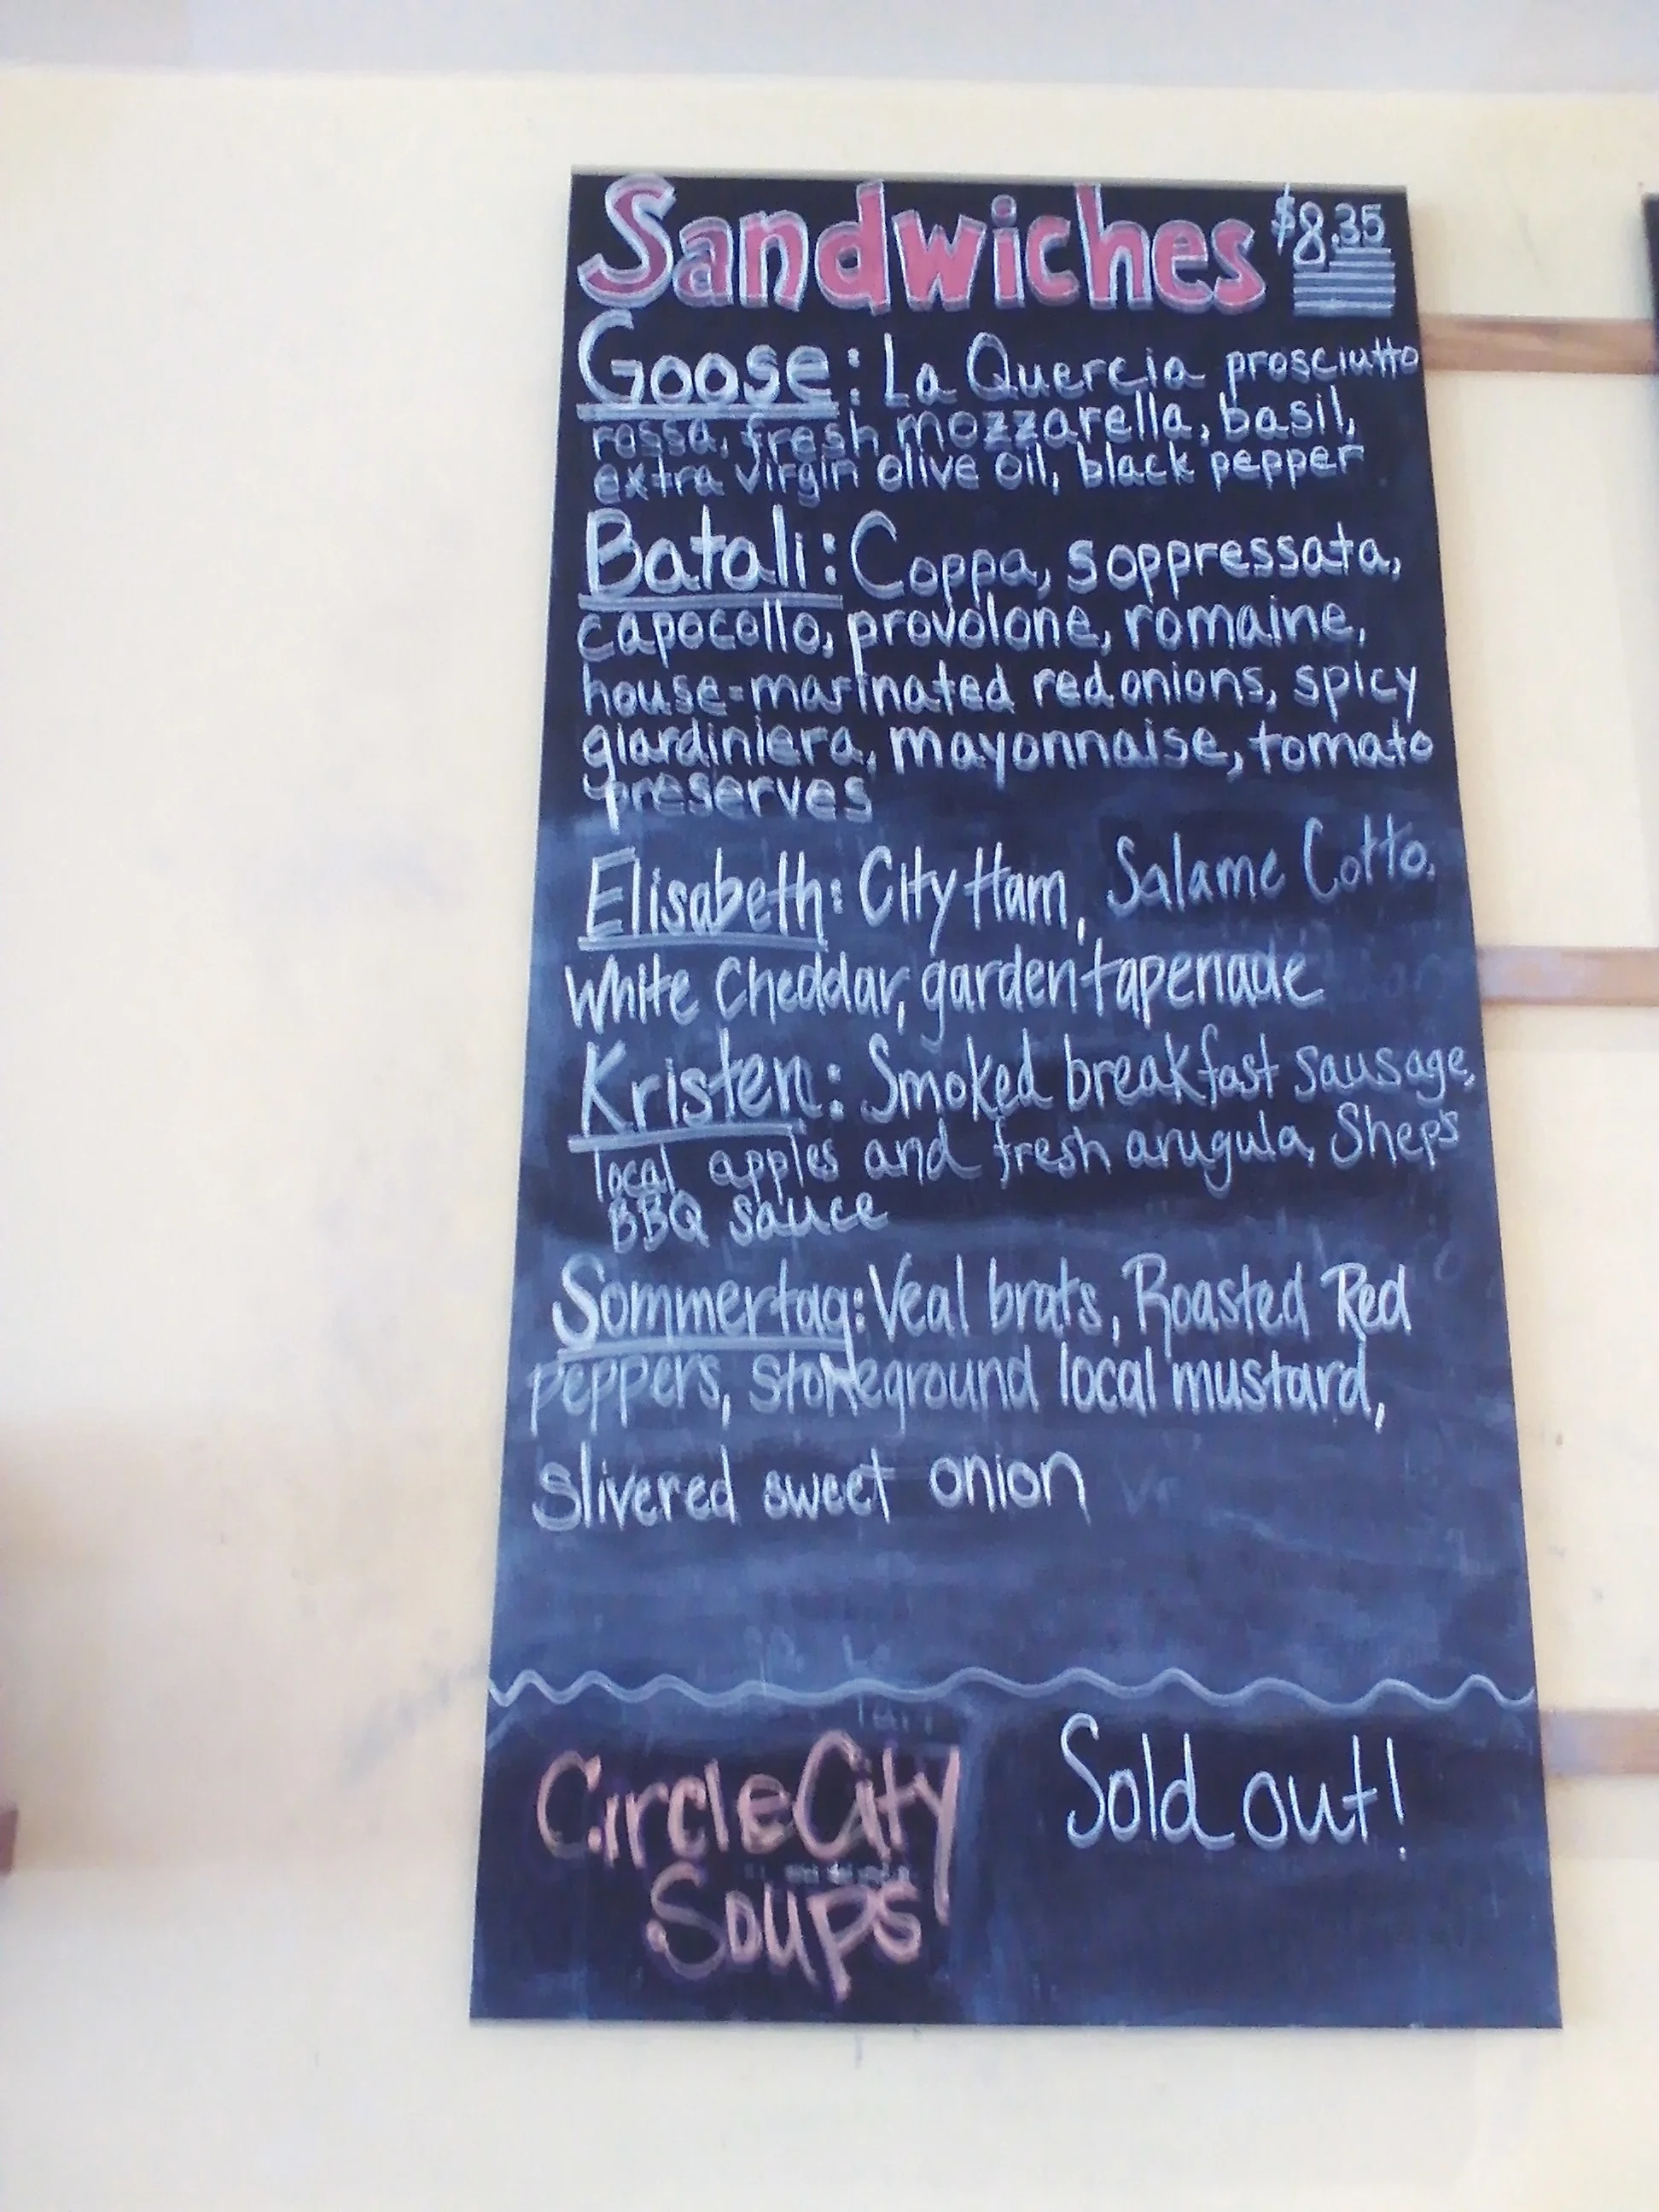 Sandwiches $8.35
Goose: La Quercia prosciutto
rossa, fresh mozzarella, basil,
extra virgin olive oil, black pepper
Batali: Coppa, soppressata,
capocollo, provolone, romaine,
house-marinated red onions, spicy
giardiniera, mayonnaise, tomato
preserves
Elisabeth: City Ham, Salame Cotto,
White Cheddar, garden tapenade
Kristen: Smoked breakfast sausage,
local apples and fresh arugula, Shep's
BBQ sauce
Sommertag: Veal brats, Roasted Red
peppers, stoneground local mustard,
slivered sweet onion
Circle City
Soups
Sold out!